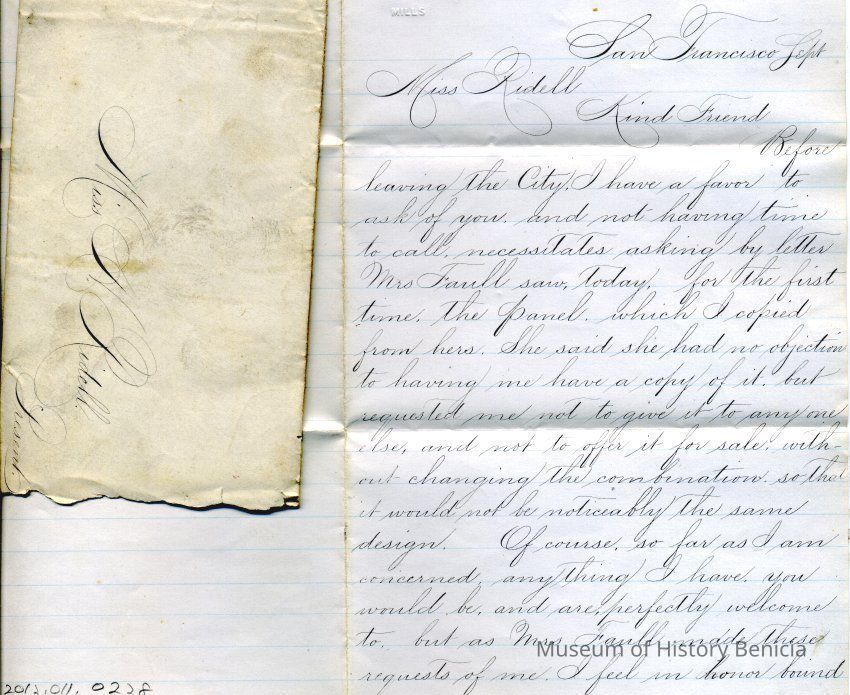 MILLS
San Francisco Sept
Miss Ridell
Kind Friend
Before
leaving the City, I have a favor to
ask of you. and not having time
to call, necessitates asking by letter
Mrs Faull saw, today, for the first
time, the panel, which I copied
from hers. She said she had no objection
to having me have a copy of it, but
requested me not to give it to any one
else, and not to offer it for sale, with-
out changing the combination, so that
it would not be noticeably the same
design. Of course, so far as I am
concerned, anything I have, you
would be, and are, perfectly welcome
to, but as Mrs Faull made these
requests of me, I feel in honor bound
Miss H Ridell.
Present.
Museum of History Benicia
2012.011.0228